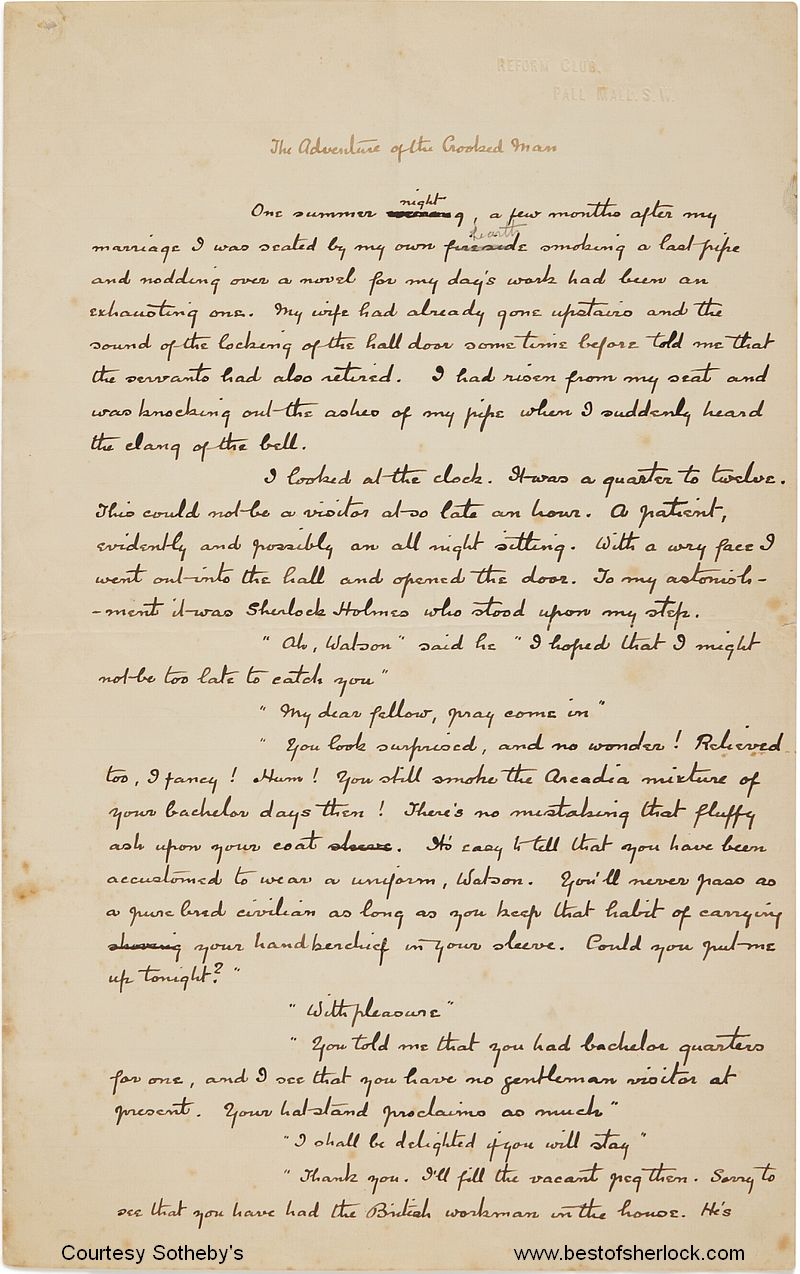 REFORM CLUB.
PALL MALL. S.W.
The Adventure of the Crooked Man
night
One summer g, a few months after my
hearth
marriage I was seated by my own fireside smoking a last pipe
and nodding over a novel for my day's work had been an
exhausting one. My wife had already gone upstairs and the
sound of the locking of the hall door some time before told me that
the servants had also retired. I had risen from my seat and
was knocking out the ashes of my pipe when I suddenly heard
the clang of the bell.
I looked at the clock. It was a quarter to twelve.
This could not be a visitor at so late an hour. A patient,
evidently and possibly an all night sitting. With a wry face I
went out into the hall and opened the door. To my astonish-
-ment it was Sherlock Holmes who stood upon my step.
"Ah, Watson" said he "I hoped that I might
not be too late to catch you"
"My dear fellow, pray come in"
"You look surprised, and no wonder! Relieved
too, I fancy! Hum! You still smoke the Arcadia mixture of
your bachelor days then! There's no mistaking that fluffy
ash upon your coat sleeve. It's easy to tell that you have been
accustomed to wear a uniform, Watson. You'll never pass as
a pure bred civilian as long as you keep that habit of carrying
shoving your handkerchief in your sleeve. Could you put me
up tonight?"
"With pleasure"
"You told me that you had bachelor quarters
for one, and I see that you have no gentleman visitor at
present. Your hat stand proclaims as much"
"I shall be delighted if you will stay"
"Thank you. I'll fill the vacant peg then. Sorry to
see that you have had the British workman in the house. He's
Courtesy Sotheby's
www.bestofsherlock.com